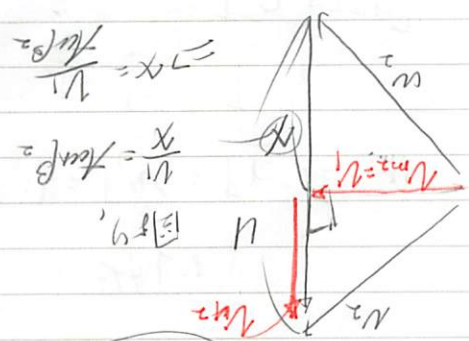 V₂
Vu₂
U
図より,
Vm₂=V₁
X
V₁/X = tanβ₂
W₂
⇒ X = V₁/tanβ₂